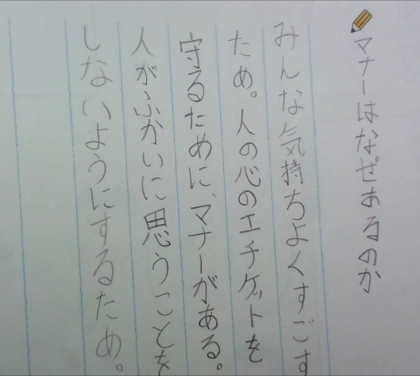 マナーはなぜあるのか
みんな気持ちよくすごす
ため。人の心のエチケットを
守るために、マナーがある。
人がふかいに思うことを
しないようにするため。